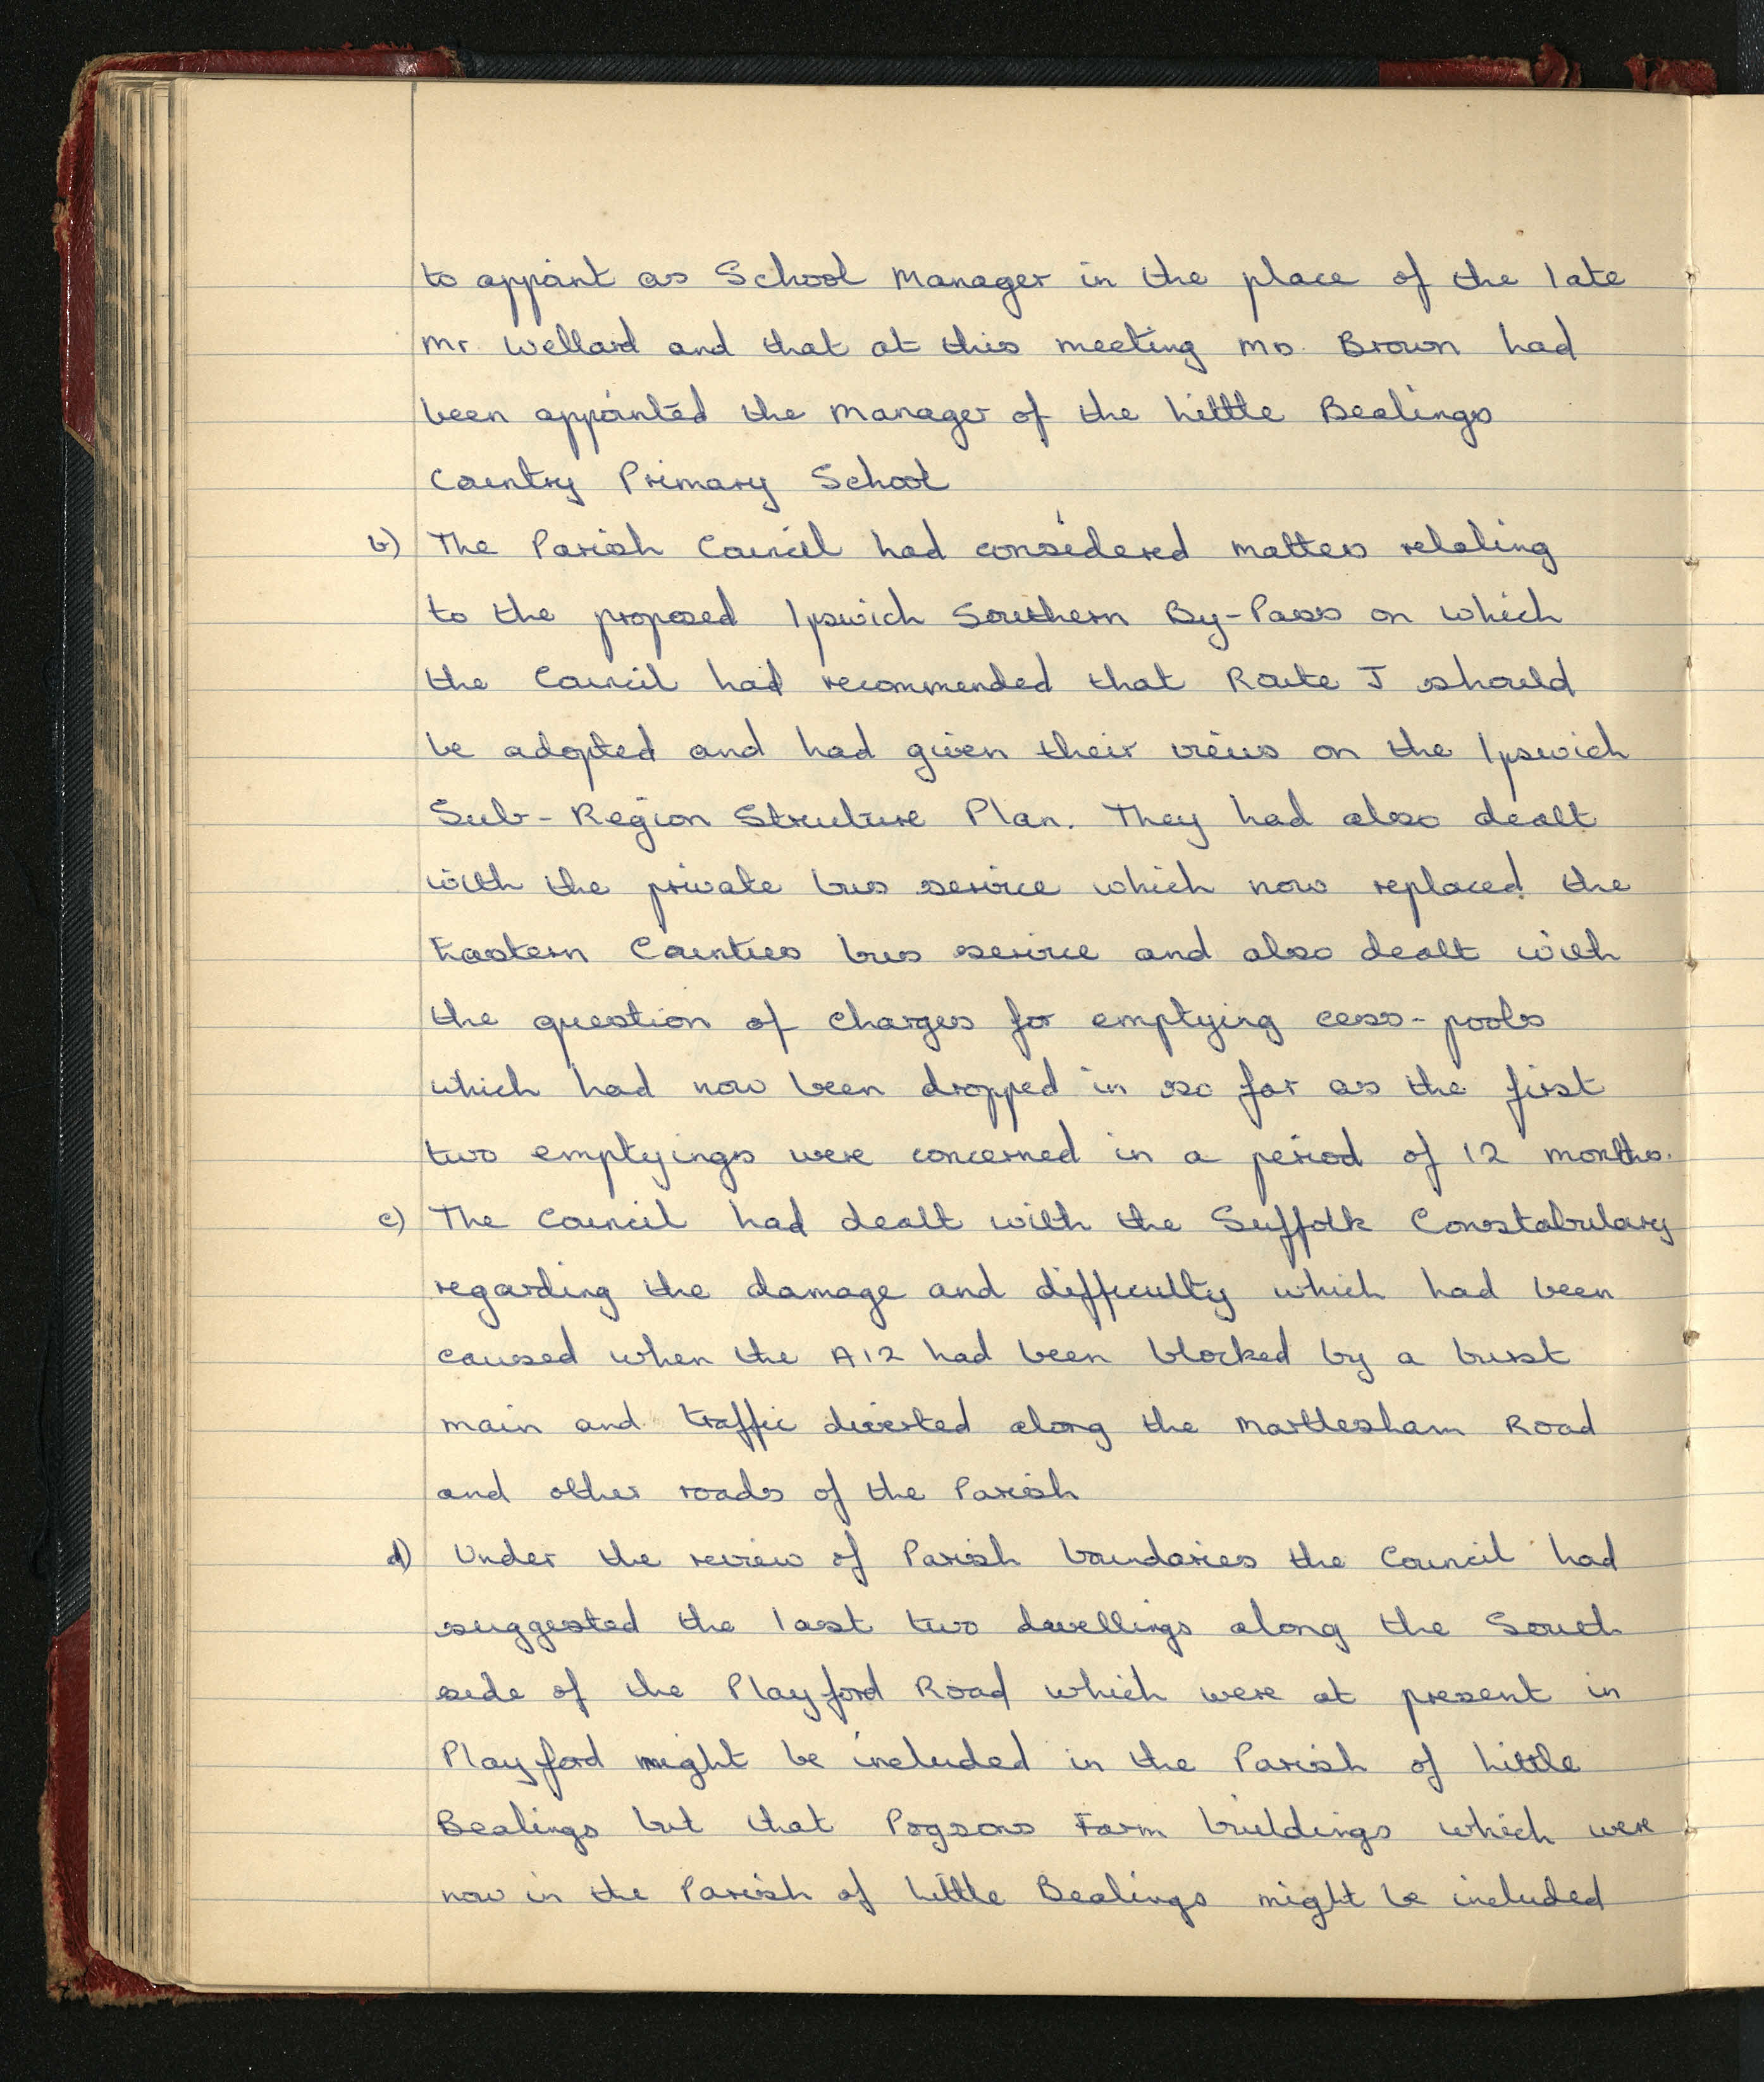 to appoint as School Manager in the place of the late
Mr Wellard and that at this meeting Mrs Brown had
been appointed the Manager of the Little Bealings
Country Primary School
b) The Parish Council had considered matters relating
to the proposed Ipswich Southern By-Pass on which
the Council had recommended that Route J should
be adopted and had given their views on the Ipswich
Sub-Region Structure Plan. They had also dealt
with the private bus service which now replaced the
Eastern Counties bus service and also dealt with
the question of charges for emptying cess-pools
which had now been dropped in so far as the first
two emptyings were concerned in a period of 12 months.
c) The Council had dealt with the Suffolk Constabulary
regarding the damage and difficulty which had been
caused when the A12 had been blocked by a burst
main and traffic diverted along the Martlesham Road
and other roads of the Parish
d) Under the review of Parish boundaries the Council had
suggested the last two dwellings along the South
side of the Playford Road which were at present in
Playford might be included in the Parish of Little
Bealings but that Pogsons Farm buildings which were
now in the Parish of Little Bealings might be included